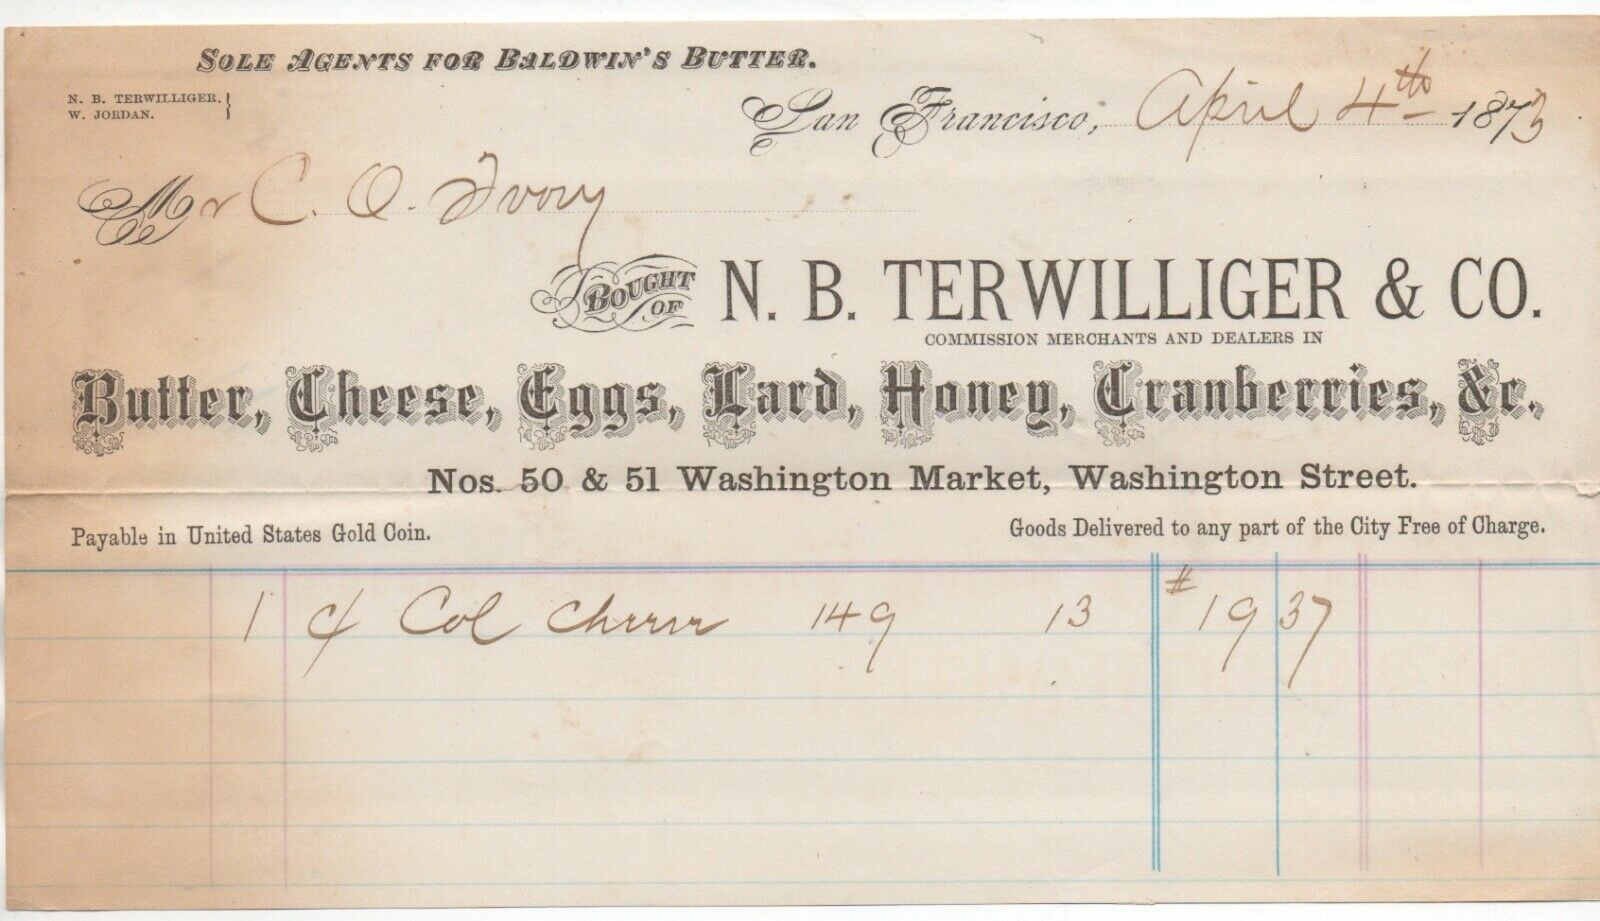 SOLE AGENTS FOR BALDWIN'S BUTTER.
N. B. TERWILLIGER,
W. JORDAN.
San Francisco, April 4th 1873
Mr C. O. Ivory
BOUGHT OF N. B. TERWILLIGER & CO.
COMMISSION MERCHANTS AND DEALERS IN
Butter, Cheese, Eggs, Lard, Honey, Cranberries, &c.
Nos. 50 & 51 Washington Market, Washington Street.
Payable in United States Gold Coin. Goods Delivered to any part of the City Free of Charge.
1 Col Cheese 149 13 # 19 37